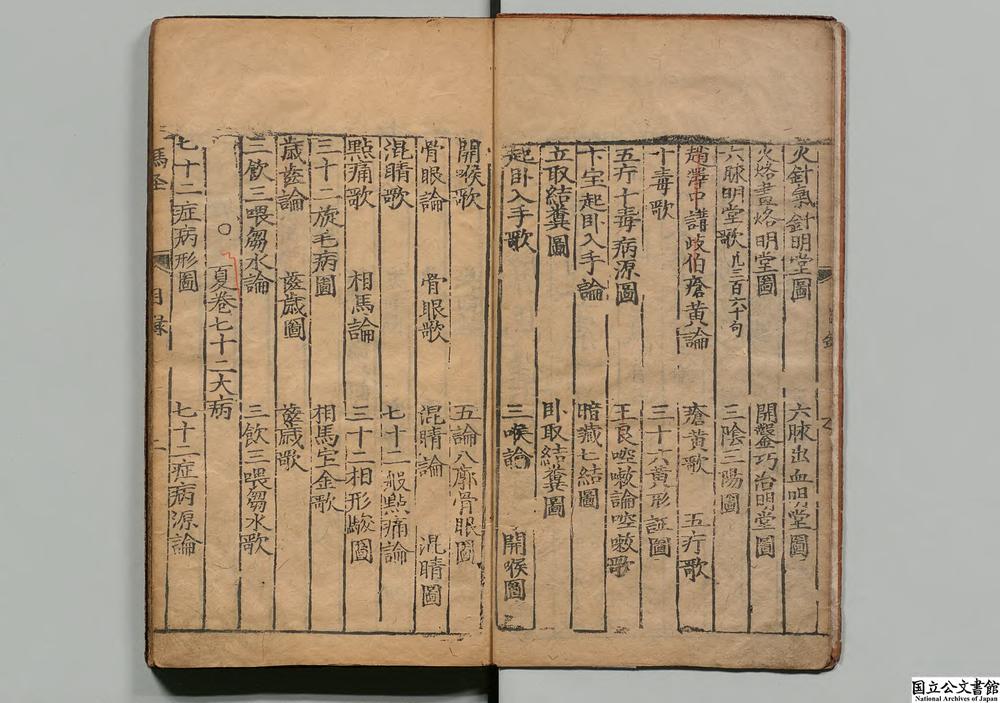 火針氣針明堂圖 六脉出血明堂圖
火烙畫烙明堂圖 開盤巧治明堂圖
六脉明堂歌 凢三百六十句 三陰三陽圖
趙澤中講岐伯瘡黃論 瘡黃歌 五疔歌
十毒歌 三十六黃形証圖
五疔十毒病源圖 王良啌嗽論啌嗽歌
卞宝起卧入手論 暗藏七結圖
立取結糞圖 卧取結糞圖
起卧入手歌 三喉論 開喉圖
開喉歌 五論八廓骨眼圖
骨眼論 骨眼歌 混睛論 混睛圖
混睛歌 七十二般點痛論
點痛歌 相馬論 三十二相形齩圖
三十二旋毛病圖 相馬宝金歌
歲齒論 齒歲圖 齒歲歌
三飲三喂芻水論 三飲三喂芻水歌
○ 夏卷七十二大病
七十二症病形圖 七十二症病源論
馬全 目录 二
国立公文書館
National Archives of Japan